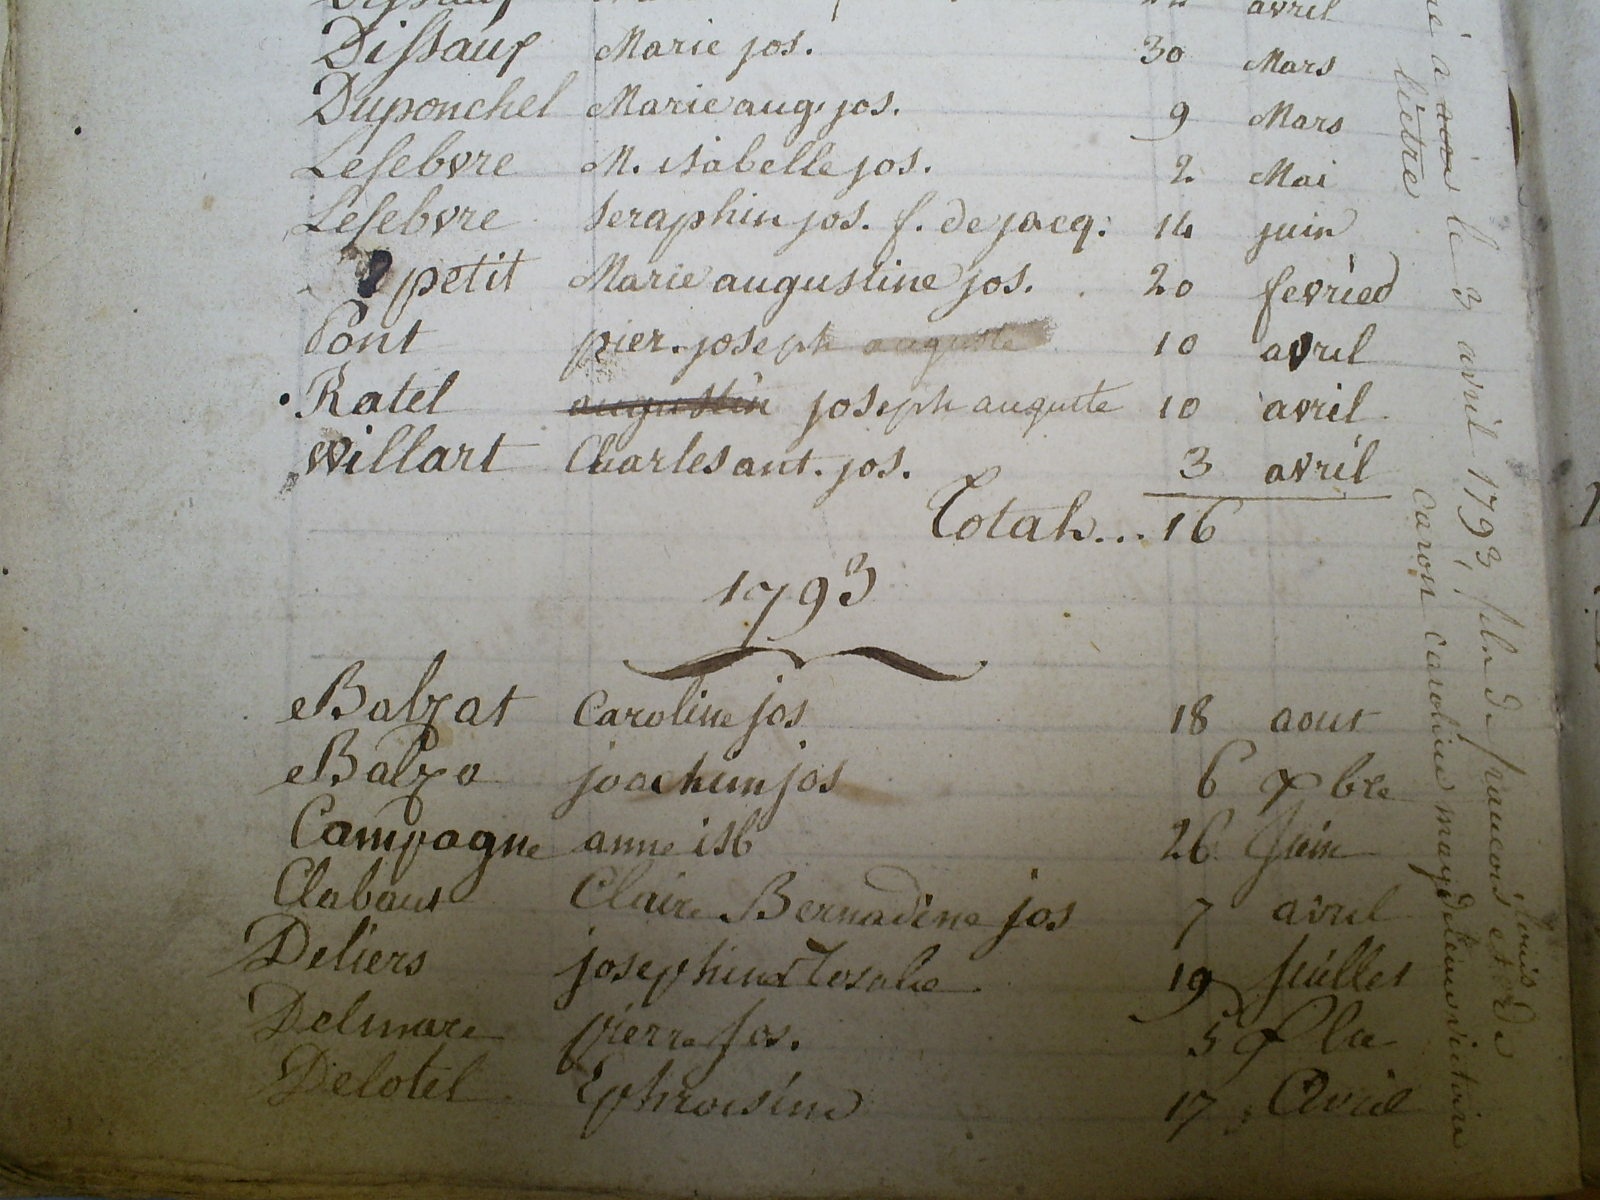 avril
Dissaux Marie jos. 30 Mars
Duponchel Marie aug. jos. 9 Mars
Lefebvre M. isabelle jos. 2. Mai
Lefebvre seraphin jos. f. de jacq: 14 juin
petit Marie augustine jos. 20 fevried
Pont pier. joseph auguste 10 avril
Ratel augustin joseph auguste 10 avril
Willart Charles ant. jos. 3 avril
Total... 16
1793
Balzat Caroline jos 18 aout
Balza joachim jos 6 bre
Campagne anne isb 26 Juin
Clabaut Claire Bernadine jos 7 avril
Deliers josephine Rosalie 19 Juillet
Delmare pierre Jos. 5
Delotel Ephroisine 17 Avril
né à le 3 avril 1793, fils de francois louis et de
liètre caron caroline magdeleine victoire